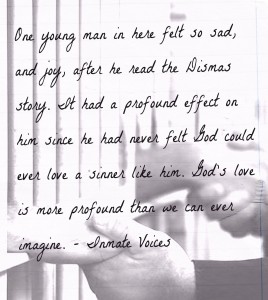 One young man in here felt so sad,
and joy, after he read the Dismas
story. It had a profound effect on
him since he had never felt God could
ever love a sinner like him. God's love
is more profound than we can ever
imagine. - Inmate Voices